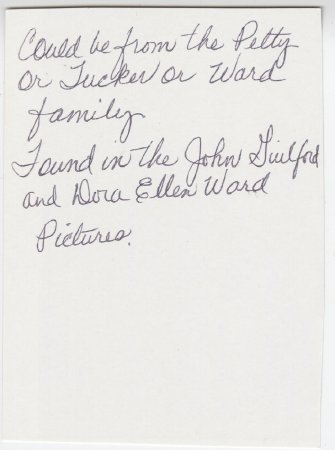 Could be from the Petty
or Tucker or Ward
family
Found in the John Guilford
and Dora Ellen Ward
Pictures.